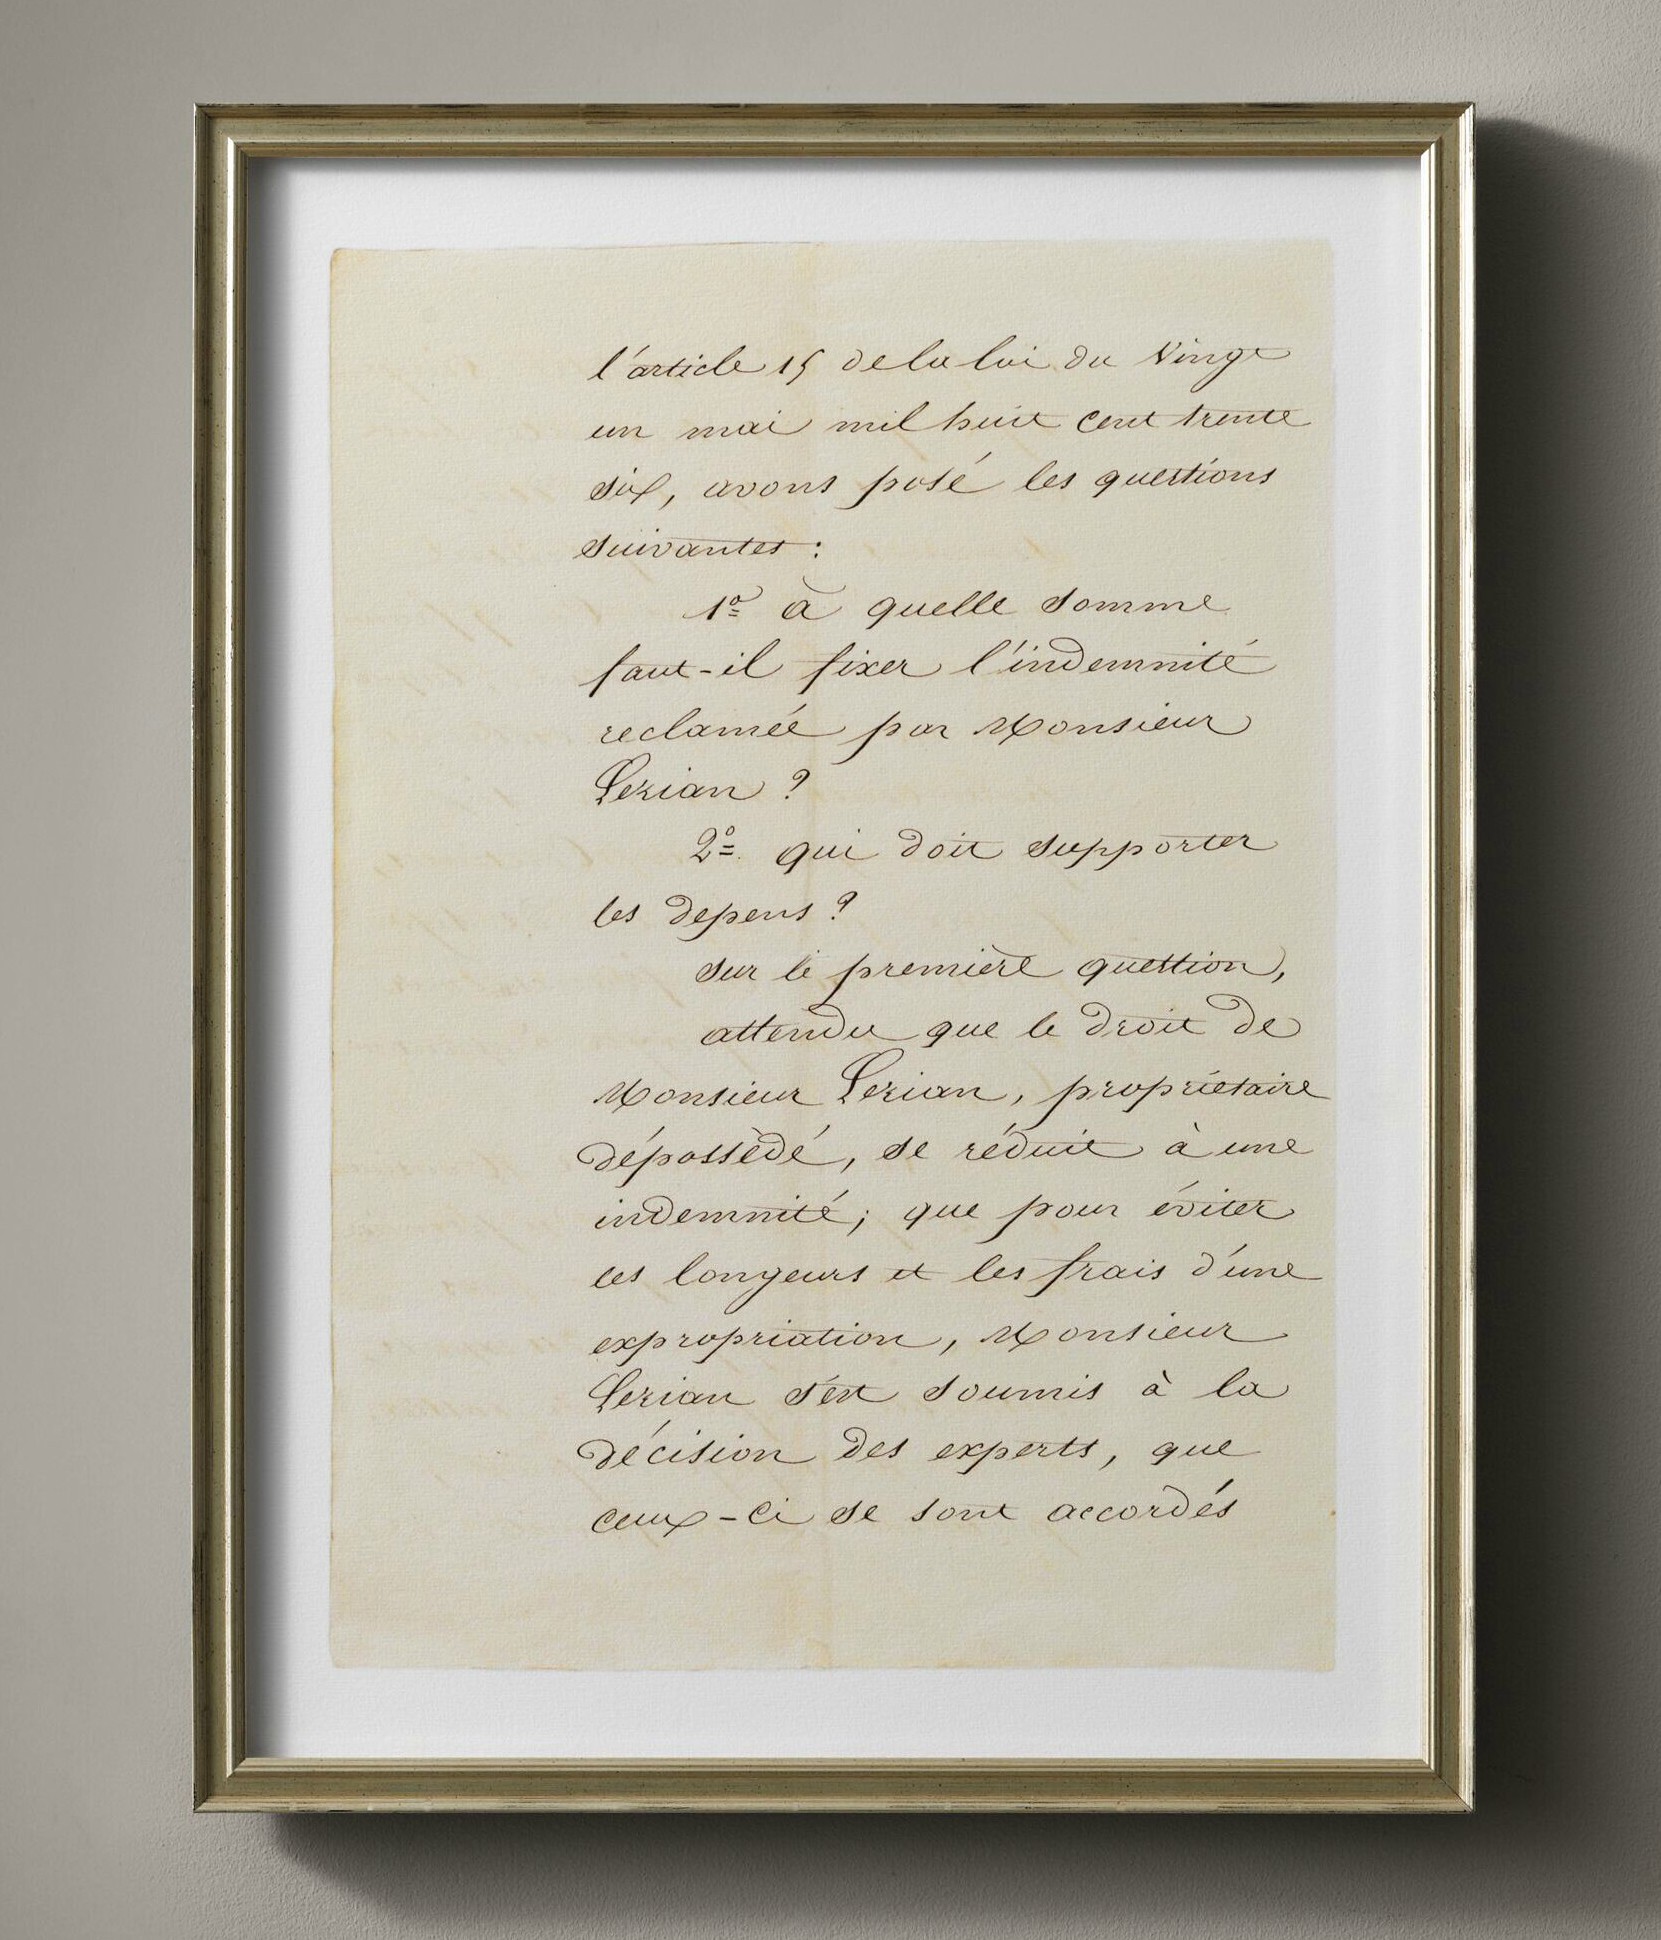 l'article 15 de la loi du Vingt
un mai mil huit cent trente
six, avons posé les questions
suivantes :
1º à quelle somme
faut-il fixer l'indemnité
reclamée par Monsieur
Lezian ?
2º qui doit supporter
les depens ?
sur le première question,
attendu que le droit de
Monsieur Lezian, propriétaire
dépossédé, se réduit à une
indemnité; que pour éviter
les longeurs et les frais d'une
expropriation, Monsieur
Lezian s'est soumis à la
décision des experts, que
ceux-ci se sont accordés